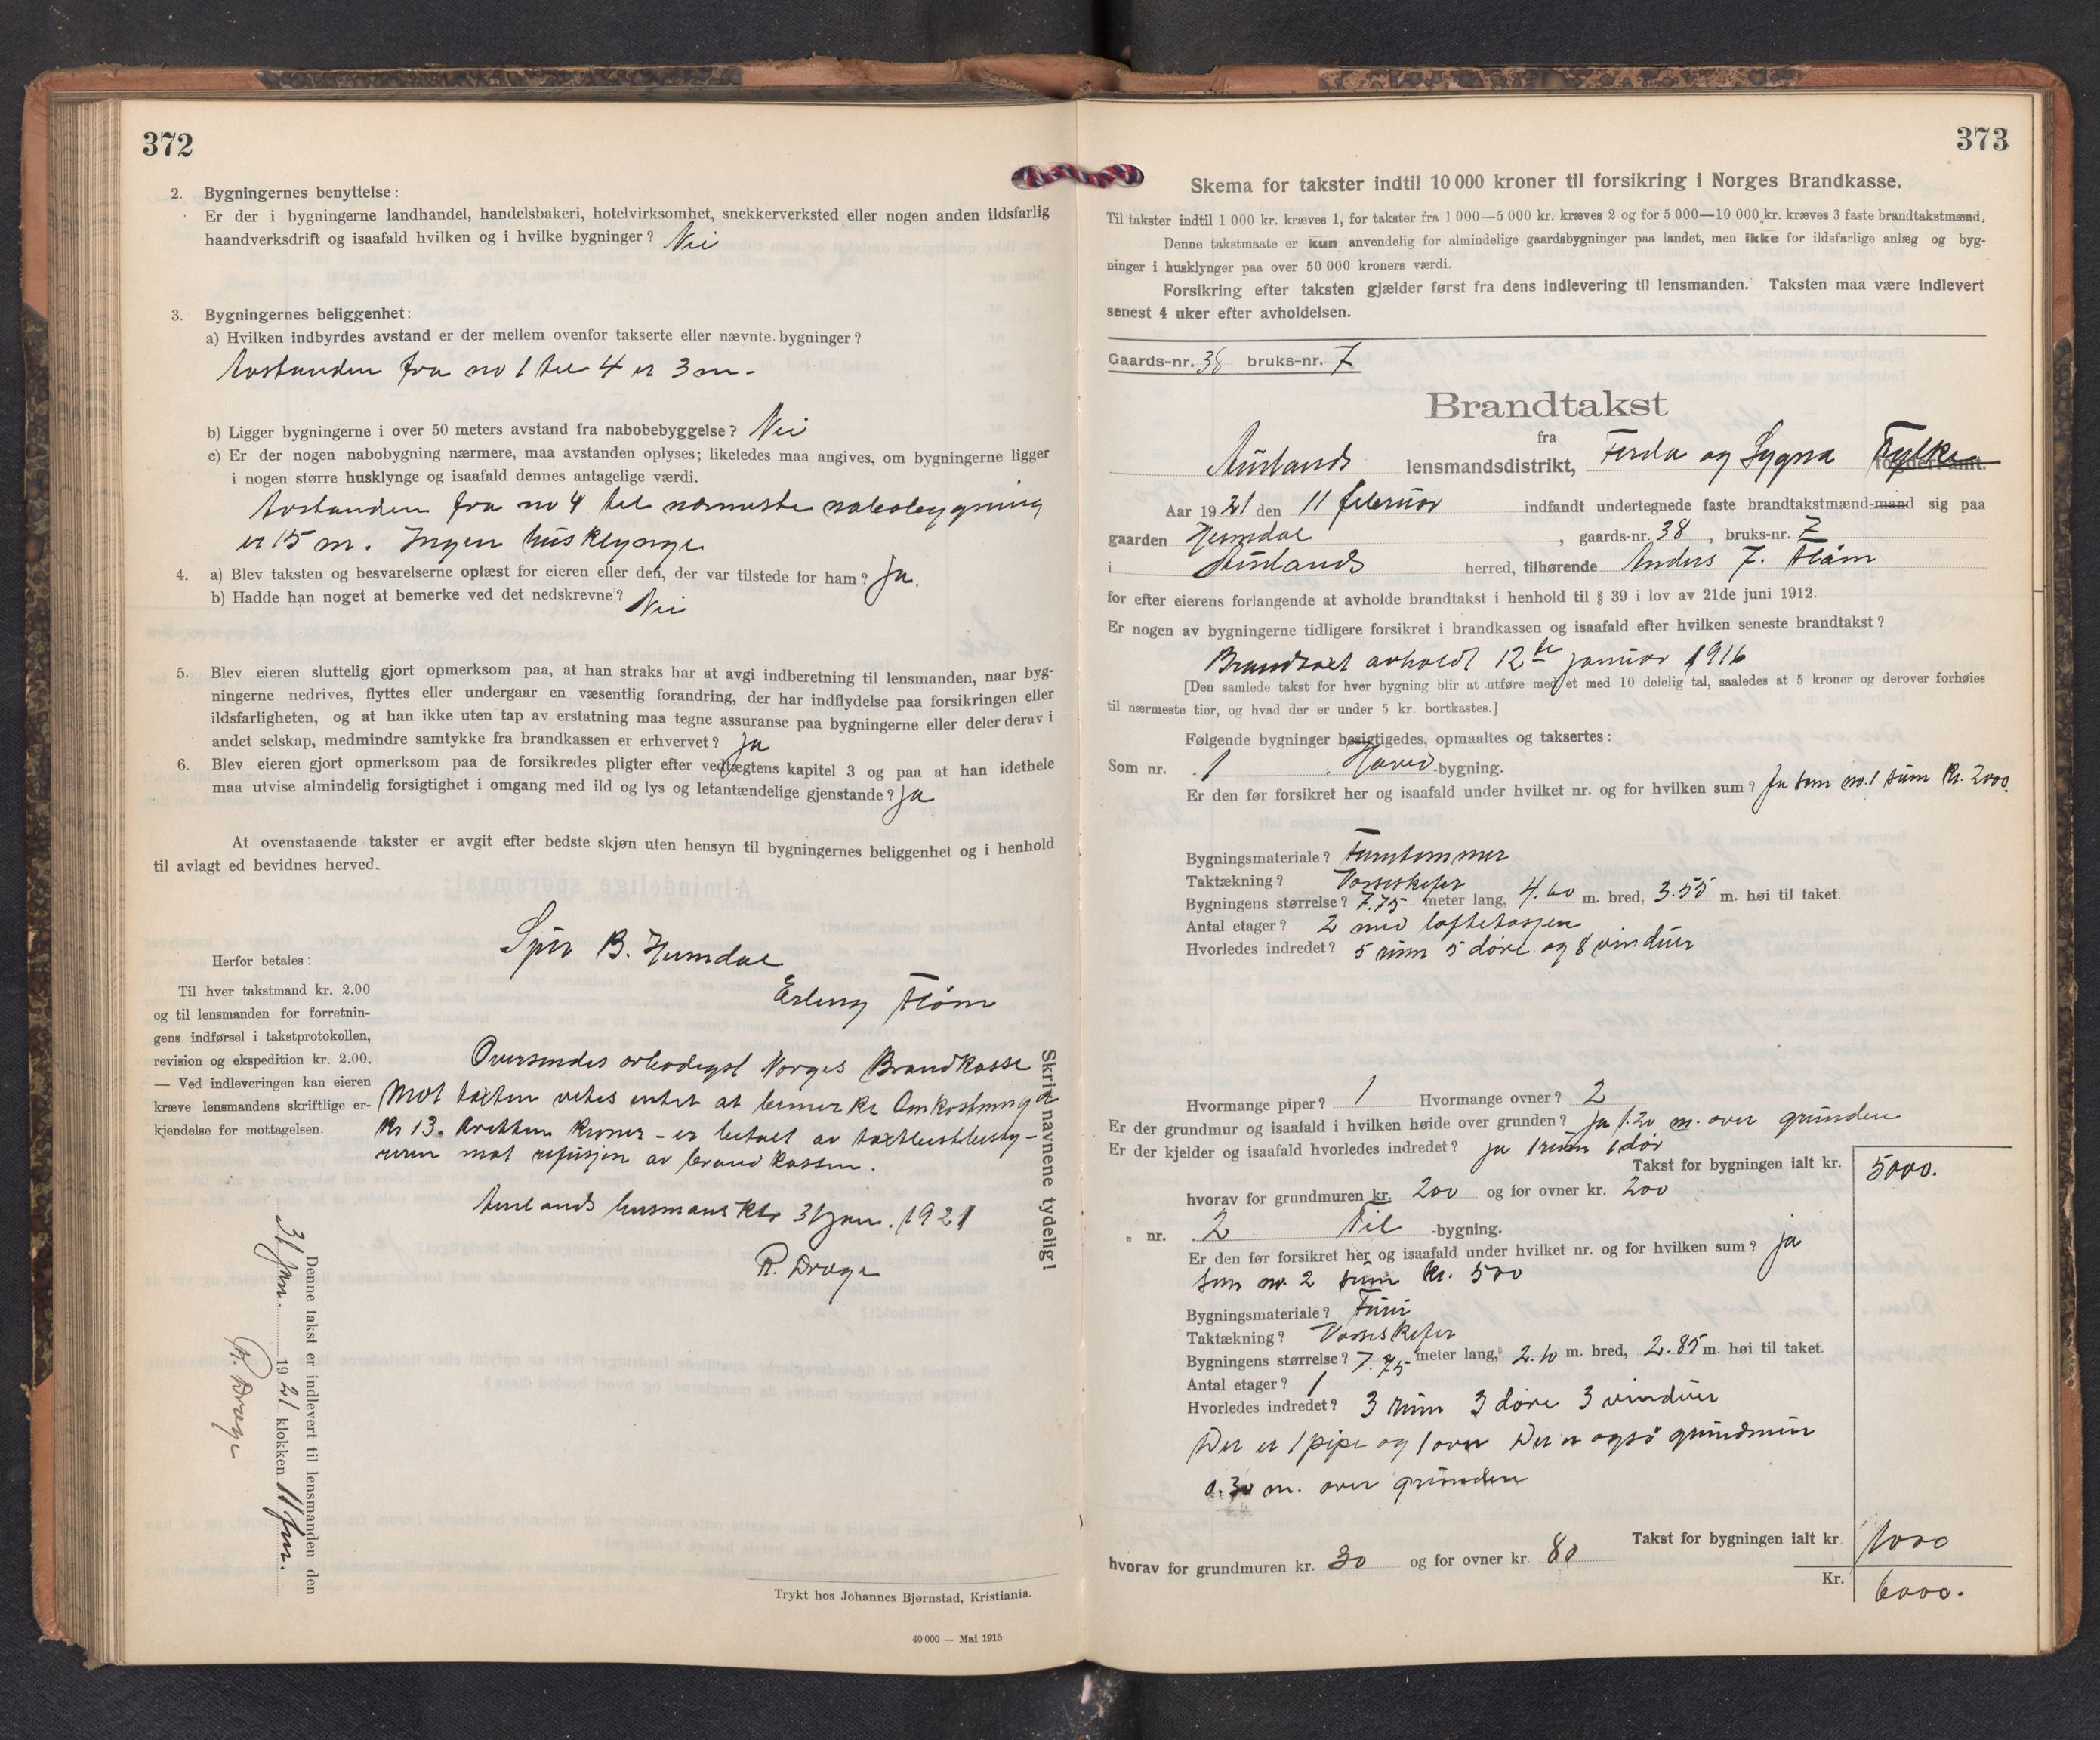 372
2. Bygningernes benyttelse:
Er der i bygningerne landhandel, handelsbakeri, hotelvirksomhet, snekkerverksted eller nogen anden ildsfarlig
haandverksdrift og isaafald hvilken og i hvilke bygninger? Nei
3. Bygningernes beliggenhet:
a) Hvilken indbyrdes avstand er der mellem ovenfor takserte eller nævnte bygninger?
Avstanden fra no 1 til 4 er 3 m.
b) Ligger bygningerne i over 50 meters avstand fra nabobebyggelse? Nei
c) Er der nogen nabobygning nærmere, maa avstanden oplyses; likeledes maa angives, om bygningerne ligger
i nogen større husklynge og isaafald dennes antagelige værdi.
Avstanden fra no 4 til nærmeste nabobygning
er 15 m. Ingen husklynge
4. a) Blev taksten og besvarelserne oplæst for eieren eller den, der var tilstede for ham? Ja.
b) Hadde han noget at bemerke ved det nedskrevne? Nei
5. Blev eieren sluttelig gjort opmerksom paa, at han straks har at avgi indberetning til lensmanden, naar byg-
ningerne nedrives, flyttes eller undergaar en væsentlig forandring, der har indflydelse paa forsikringen eller
ildsfarligheten, og at han ikke uten tap av erstatning maa tegne assuranse paa bygningerne eller deler derav i
andet selskap, medmindre samtykke fra brandkassen er erhvervet? Ja
6. Blev eieren gjort opmerksom paa de forsikredes pligter efter vedtægtens kapitel 3 og paa at han idethele
maa utvise almindelig forsigtighet i omgang med ild og lys og letantændelige gjenstande? Ja
At ovenstaaende takster er avgit efter bedste skjøn uten hensyn til bygningernes beliggenhet og i henhold
til avlagt ed bevidnes herved.
B. Humdal
Erling Flåm
Herfor betales:
Til hver takstmand kr. 2.00
og til lensmanden for forretnin-
gens indførsel i takstprotokollen,
revision og ekspedition kr. 2.00.
— Ved indleveringen kan eieren
kræve lensmandens skriftlige er-
kjendelse for mottagelsen.
Oversendes ærbødigst Norges Brandkasse
Mot taxten vites intet at bemerke Omkostninger
Kr 13. tretten kroner - er betalt av
mot refusjon av brandkassen.
Aurlands lensmans Ktr 31 jan. 1921
R. Drage
Skriv navnene tydelig!
Denne takst er indlevert til lensmanden den
31 jan. 1921 klokken 11 fm.
R. Drage
Trykt hos Johannes Bjørnstad, Kristiania.
40 000 — Mai 1915
373
Skema for takster indtil 10 000 kroner til forsikring i Norges Brandkasse.
Til takster indtil 1 000 kr. kræves 1, for takster fra 1 000—5 000 kr. kræves 2 og for 5 000—10 000 kr. kræves 3 faste brandtakstmænd.
Denne takstmaate er kun anvendelig for almindelige gaardsbygninger paa landet, men ikke for ildsfarlige anlæg og byg-
ninger i husklynger paa over 50 000 kroners værdi.
Forsikring efter taksten gjælder først fra dens indlevering til lensmanden. Taksten maa være indlevert
senest 4 uker efter avholdelsen.
Gaards-nr. 38 bruks-nr. 7
Brandtakst
fra
Aurlands lensmandsdistrikt, Firda og Sygna Fylke
Aar 1921 den 11 februar indfandt undertegnede faste brandtakstmænd-mand sig paa
gaarden Humdal, gaards-nr. 38, bruks-nr. 7
i Aurlands herred, tilhørende Anders J. Flåm
for efter eierens forlangende at avholde brandtakst i henhold til § 39 i lov av 21de juni 1912.
Er nogen av bygningerne tidligere forsikret i brandkassen og isaafald efter hvilken seneste brandtakst?
Brandtaxt avholdt 12te januar 1916
[Den samlede takst for hver bygning blir at utføre med et med 10 delelig tal, saaledes at 5 kroner og derover forhøies
til nærmeste tier, og hvad der er under 5 kr. bortkastes.]
Følgende bygninger besigtigedes, opmaaltes og taksertes:
Som nr. 1 Hoved-bygning.
Er den før forsikret her og isaafald under hvilket nr. og for hvilken sum? Ja som no. 1 sum Kr. 2000.
Bygningsmateriale? Furutømmer
Taktækning? Vosseskifer
Bygningens størrelse? 7.75 meter lang, 4.60 m. bred, 3.55 m. høi til taket.
Antal etager? 2 med loftetasjen
Hvorledes indredet? 5 rum 5 döre og 8 vinduer
Hvormange piper? 1 Hvormange ovner? 2
Er der grundmur og isaafald i hvilken høide over grunden? Ja 1.20 m. over grunden
Er der kjelder og isaafald hvorledes indredet? ja 1 rum 1 dør
Takst for bygningen ialt kr. 5000.
hvorav for grundmuren kr. 200 og for ovner kr. 200
„ nr. 2 Til-bygning.
Er den før forsikret her og isaafald under hvilket nr. og for hvilken sum? ja
som no. 2 sum kr. 500
Bygningsmateriale? Furu
Taktækning? Vosseskifer
Bygningens størrelse? 7.75 meter lang, 2.10 m. bred, 2.85 m. høi til taket.
Antal etager? 1
Hvorledes indredet? 3 rum 3 döre 3 vinduer
Der er 1 pipe og 1 ovn Der er også grundmur
0.30 m. over grunden
Takst for bygningen ialt kr. 1000
hvorav for grundmuren kr. 30 og for ovner kr. 80
Kr. 6000.